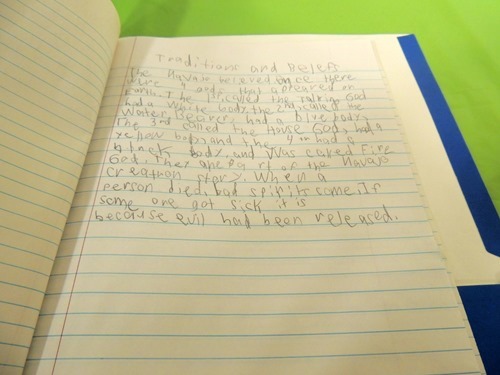 Traditions and Beleifs
The Navajo beleived once there
were 4 gods that appeared on
Earth. The 1st called the Talking God
had a white body, the 2nd, called the
Water Beaver, had a blue body,
The 3rd called the House God, had a
yellow body, and the 4th had a
black body, and was called Fire
God. They are part of the Navajo
creation story. When a
person died, bad spirits come. If
some one got sick it is
because evil had been released.